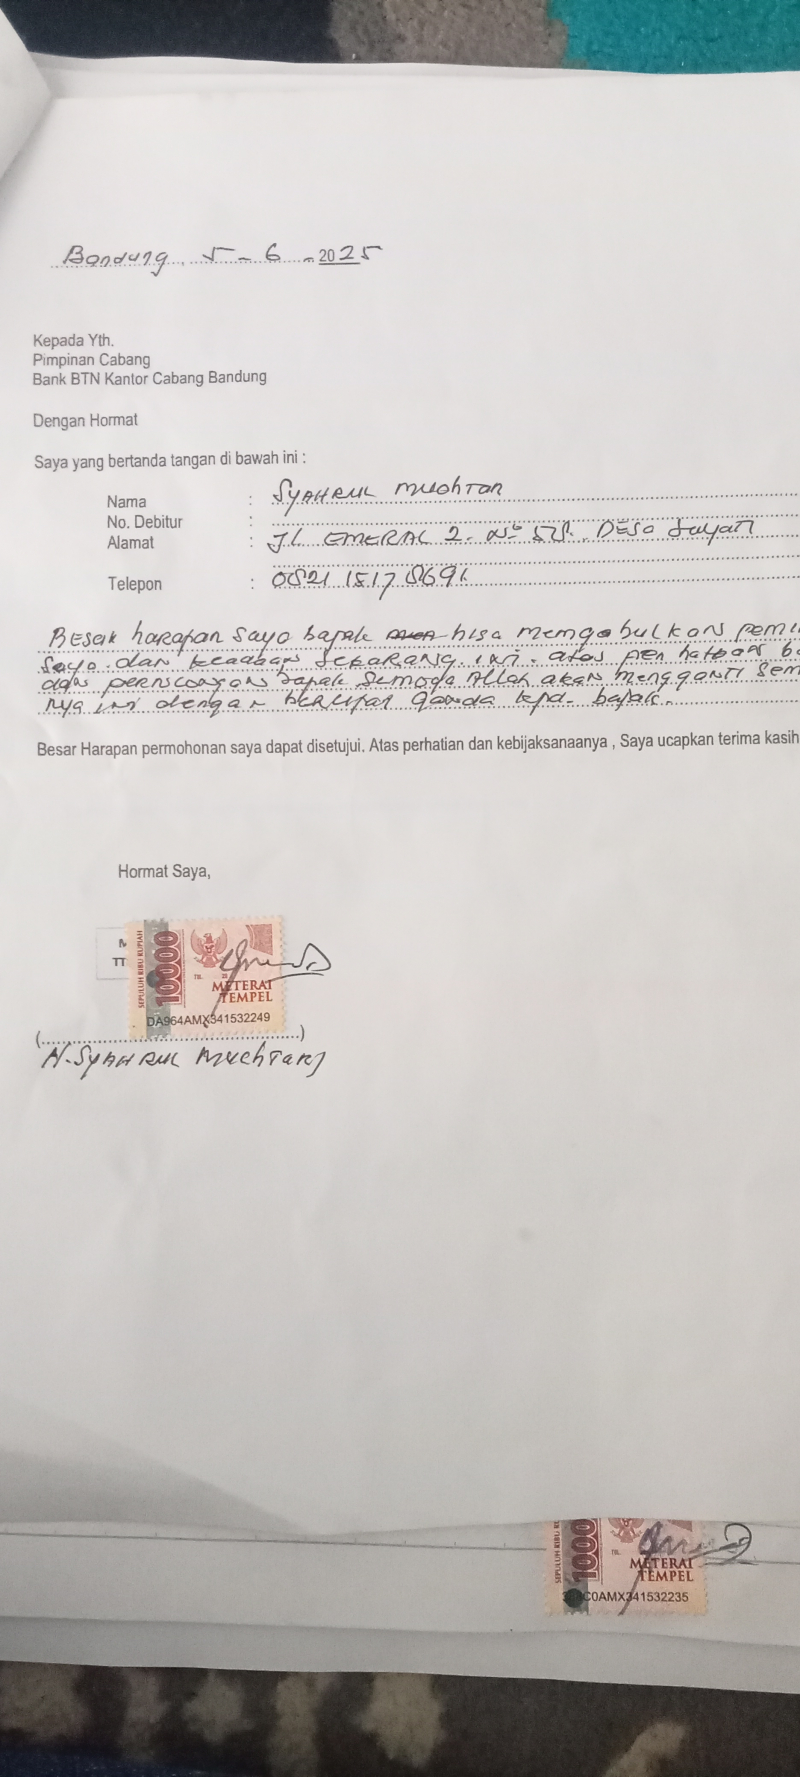 Bandung, 5 - 6 - 2025
Kepada Yth.
Pimpinan Cabang
Bank BTN Kantor Cabang Bandung
Dengan Hormat
Saya yang bertanda tangan di bawah ini :
Nama : SYAHRUL MUCHTAR
No. Debitur :
Alamat : JL EMERAL 2. DESA Sayati
Telepon :
BESAR harapan saya bapak bisa mengabulkan
saya. dan keadaan sekarang ini. atas
dan bapak semoga Allah akan mengganti sem
nya ini dengan berlipat ganda kpd. bapak.
Besar Harapan permohonan saya dapat disetujui. Atas perhatian dan kebijaksanaanya , Saya ucapkan terima kasih
Hormat Saya,
M
TT
SEPULUH RIBU RUPIAH
10000
TGL. 20
METERAI
TEMPEL
DA964AMX341532249
(..........)
H. SYAHRUL MUCHTAR
SEPULUH RIBU RU
1000
TGL.
METERAI
TEMPEL
C0AMX341532235